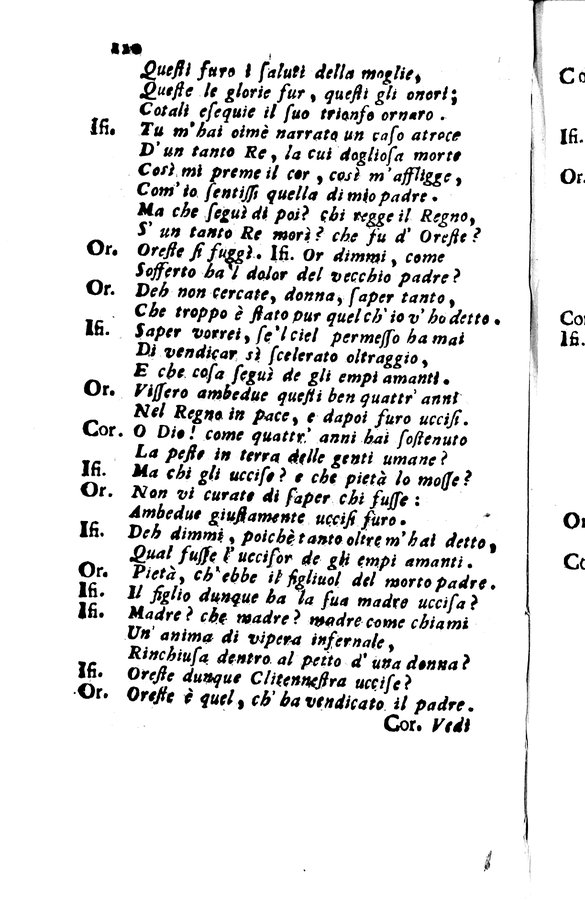 120
Queſti furo i ſaluti della moglie,
Queſte le glorie fur, queſti gli onori;
Cotali eſequie il ſuo trionfo ornaro.
Iſi. Tu m'hai oimè narrato un caſo atroce
D'un tanto Re, la cui doglioſa morte
Così mi preme il cor, così m'affligge,
Com'io ſentiſſi quella di mio padre.
Ma che ſeguì di poi? chi regge il Regno,
S'un tanto Re morì? che fu d'Oreſte?
Or. Oreſte ſi fuggì. Iſi. Or dimmi, come
Sofferto ha'l dolor del vecchio padre?
Or. Deh non cercate, donna, ſaper tanto,
Che troppo è ſtato pur quel ch'io v'ho detto.
Iſi. Saper vorrei, ſe'l ciel permeſſo ha mai
Di vendicar sì ſcelerato oltraggio,
E che coſa ſeguì de gli empi amanti.
Or. Viſſero ambedue queſti ben quattr'anni
Nel Regno in pace, e dapoi furo ucciſi.
Cor. O Dio! come quattr'anni hai ſoſtenuto
La peſte in terra delle genti umane?
Iſi. Ma chi gli ucciſe? e che pietà lo moſſe?
Or. Non vi curate di ſaper chi fuſſe:
Ambedue giuſtamente ucciſi furo.
Iſi. Deh dimmi, poichè tanto oltre m'hai detto,
Qual fuſſe l'ucciſor de gli empi amanti.
Or. Pietà, ch'ebbe il figliuol del morto padre.
Iſi. Il figlio dunque ha la ſua madre ucciſa?
Iſi. Madre? che madre? madre come chiami
Un'anima di vipera infernale,
Rinchiuſa dentro al petto d'una donna?
Iſi. Oreſte dunque Clitenneſtra ucciſe?
Or. Oreſte è quel, ch'ha vendicato il padre.
Cor. Vedi
Co
Iſi.
Or.
Cor
Iſi.
Or
Co